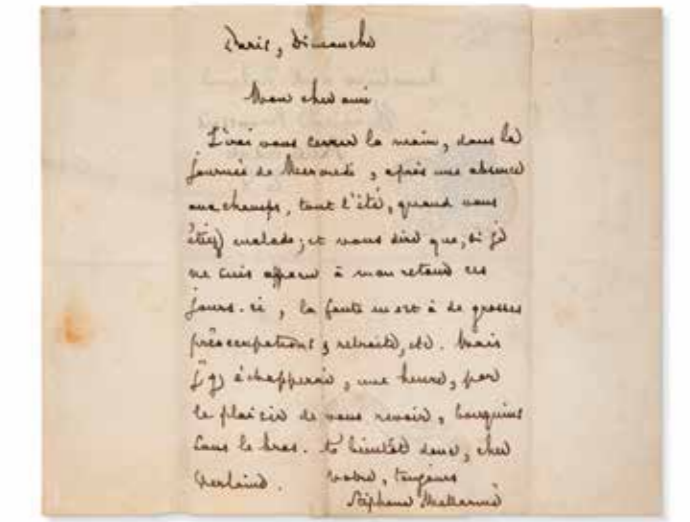 Paris, Dimanche
Mon cher ami
J'irai vous serrer la main, dans la
journée de Mercredi, après une absence
aux champs, tout l'été, quand vous
étiez malade; et vous dire que, si je
ne suis apparu à mon retour ces
jours-ci, la faute en est à de grosses
préoccupations, retraite, etc. Mais
j'y échapperai, une heure, pour
le plaisir de vous revoir, bouquins
sous le bras. À bientôt donc, cher
Verlaine. Votre, toujours
Stéphane Mallarmé